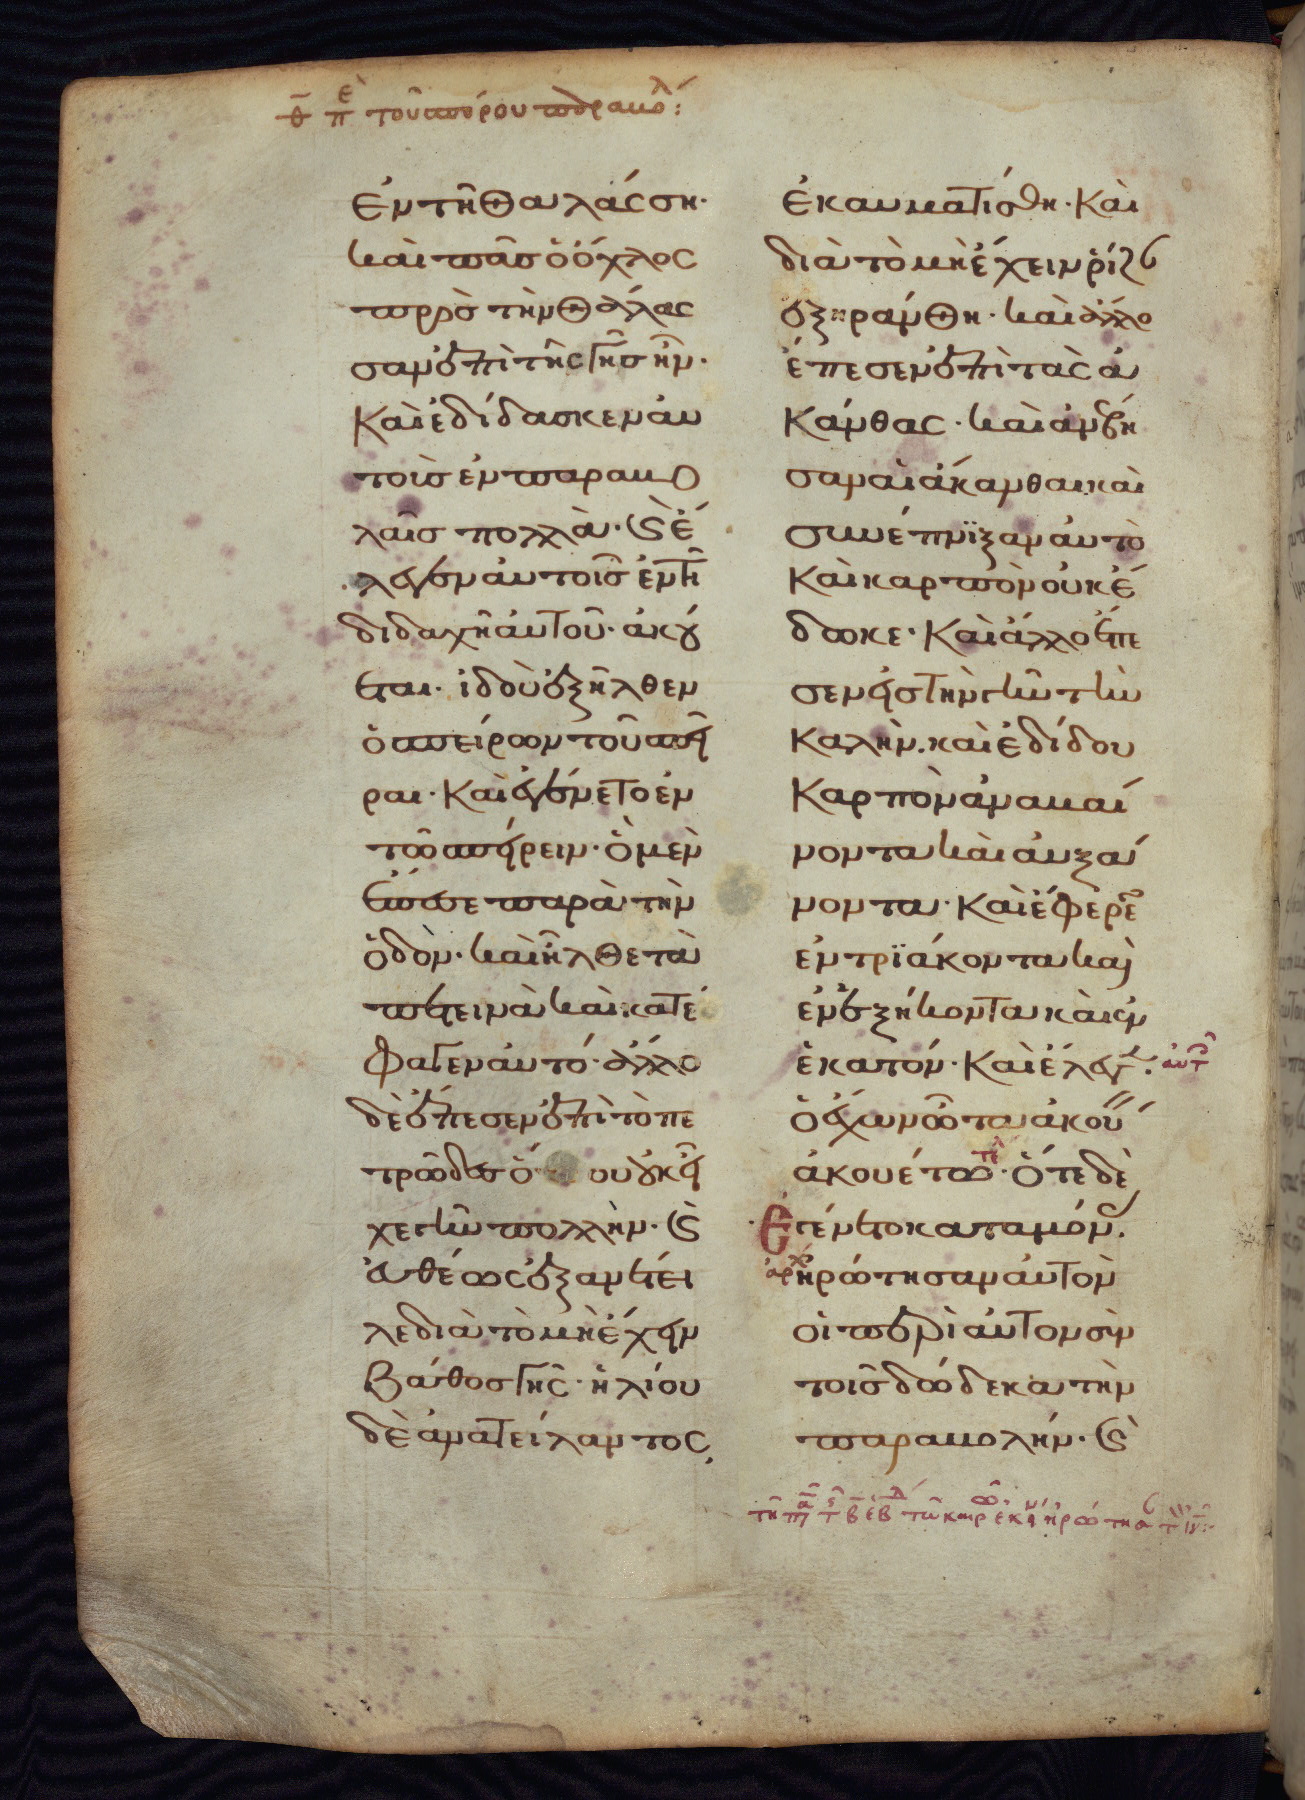 θ̄ πὲ τοῦ σπόρου παραβολ:
ἐν τῆ θαλάσση·
καὶ πᾶσ ὁ ὄχλος
πρὸσ τὴν θάλασ
σαν ἐπὶ τῆς γῆσ ἦν·
Καὶ ἐδίδασκεν αὐ
τοὶσ ἐν παραβο
λαῖσ πολλὰ· ϗ ἔ
λεγεν αὐτοῖσ ἐν τῆ
διδαχῆ αὐτοῦ· ἀκού
εται· ἰδοὺ ἐξῆλθεν
ὁ σπείρων τοῦ σπεῖ
ραι· Καὶ ἐγένετο ἐν
τῶ σπείρειν· ὃ μὲν
ἔπεσε παρὰ τὴν
ὁδὸν· καὶ ἦλθε τὰ
πετεινὰ καὶ κατέ
φαγεν αὐτό· ἄλλο
δὲ ἔπεσεν ἐπὶ τὸ πε
τρῶδεσ ὅπου οὐκ εἶ
χε γῆν πολλὴν· ϗ
εὐθέως ἐξανέτει
λε διὰ τὸ μὴ ἔχειν
βάθοσ γῆς· ἡλίου
δὲ ἀνατείλαντος,
ἐκαυματίσθη· Καὶ
διὰ τὸ μὴ ἔχειν ῥίζαν
ἐξηράνθη· καὶ ἄλλο
ἔπεσεν ἐπὶ τὰς ἀ
κάνθας· καὶ ἀνέβη
σαν αἱ ἄκανθαι καὶ
συνέπνϊξαν αὐτὸ
Καὶ καρπὸν οὐκ ἔ
δωκε· Καὶ ἄλλο ἔπε
σεν εἰς τὴν γῆν τὴν
καλὴν. καὶ ἐδίδου
καρπὸν ἀναβαί
νοντα καὶ αὐξά
νοντα· Καὶ ἔφερεν
ἐν τρϊάκοντα καὶ
ἐν ἑξήκοντα καὶ ἐν
ἑκατόν· Καὶ ἔλεγεν· αὐτ
ὁ ἔχων ὦτα ἀκούειν
ἀκουέτω· ὅτε δὲ
Ἐγένετο καταμόνας
ἀρχ ἠρώτησαν αὐτὸν
οἱ περὶ αὐτον σὺν
τοῖσ δώδεκα τὴν
παραβολήν· ϗ